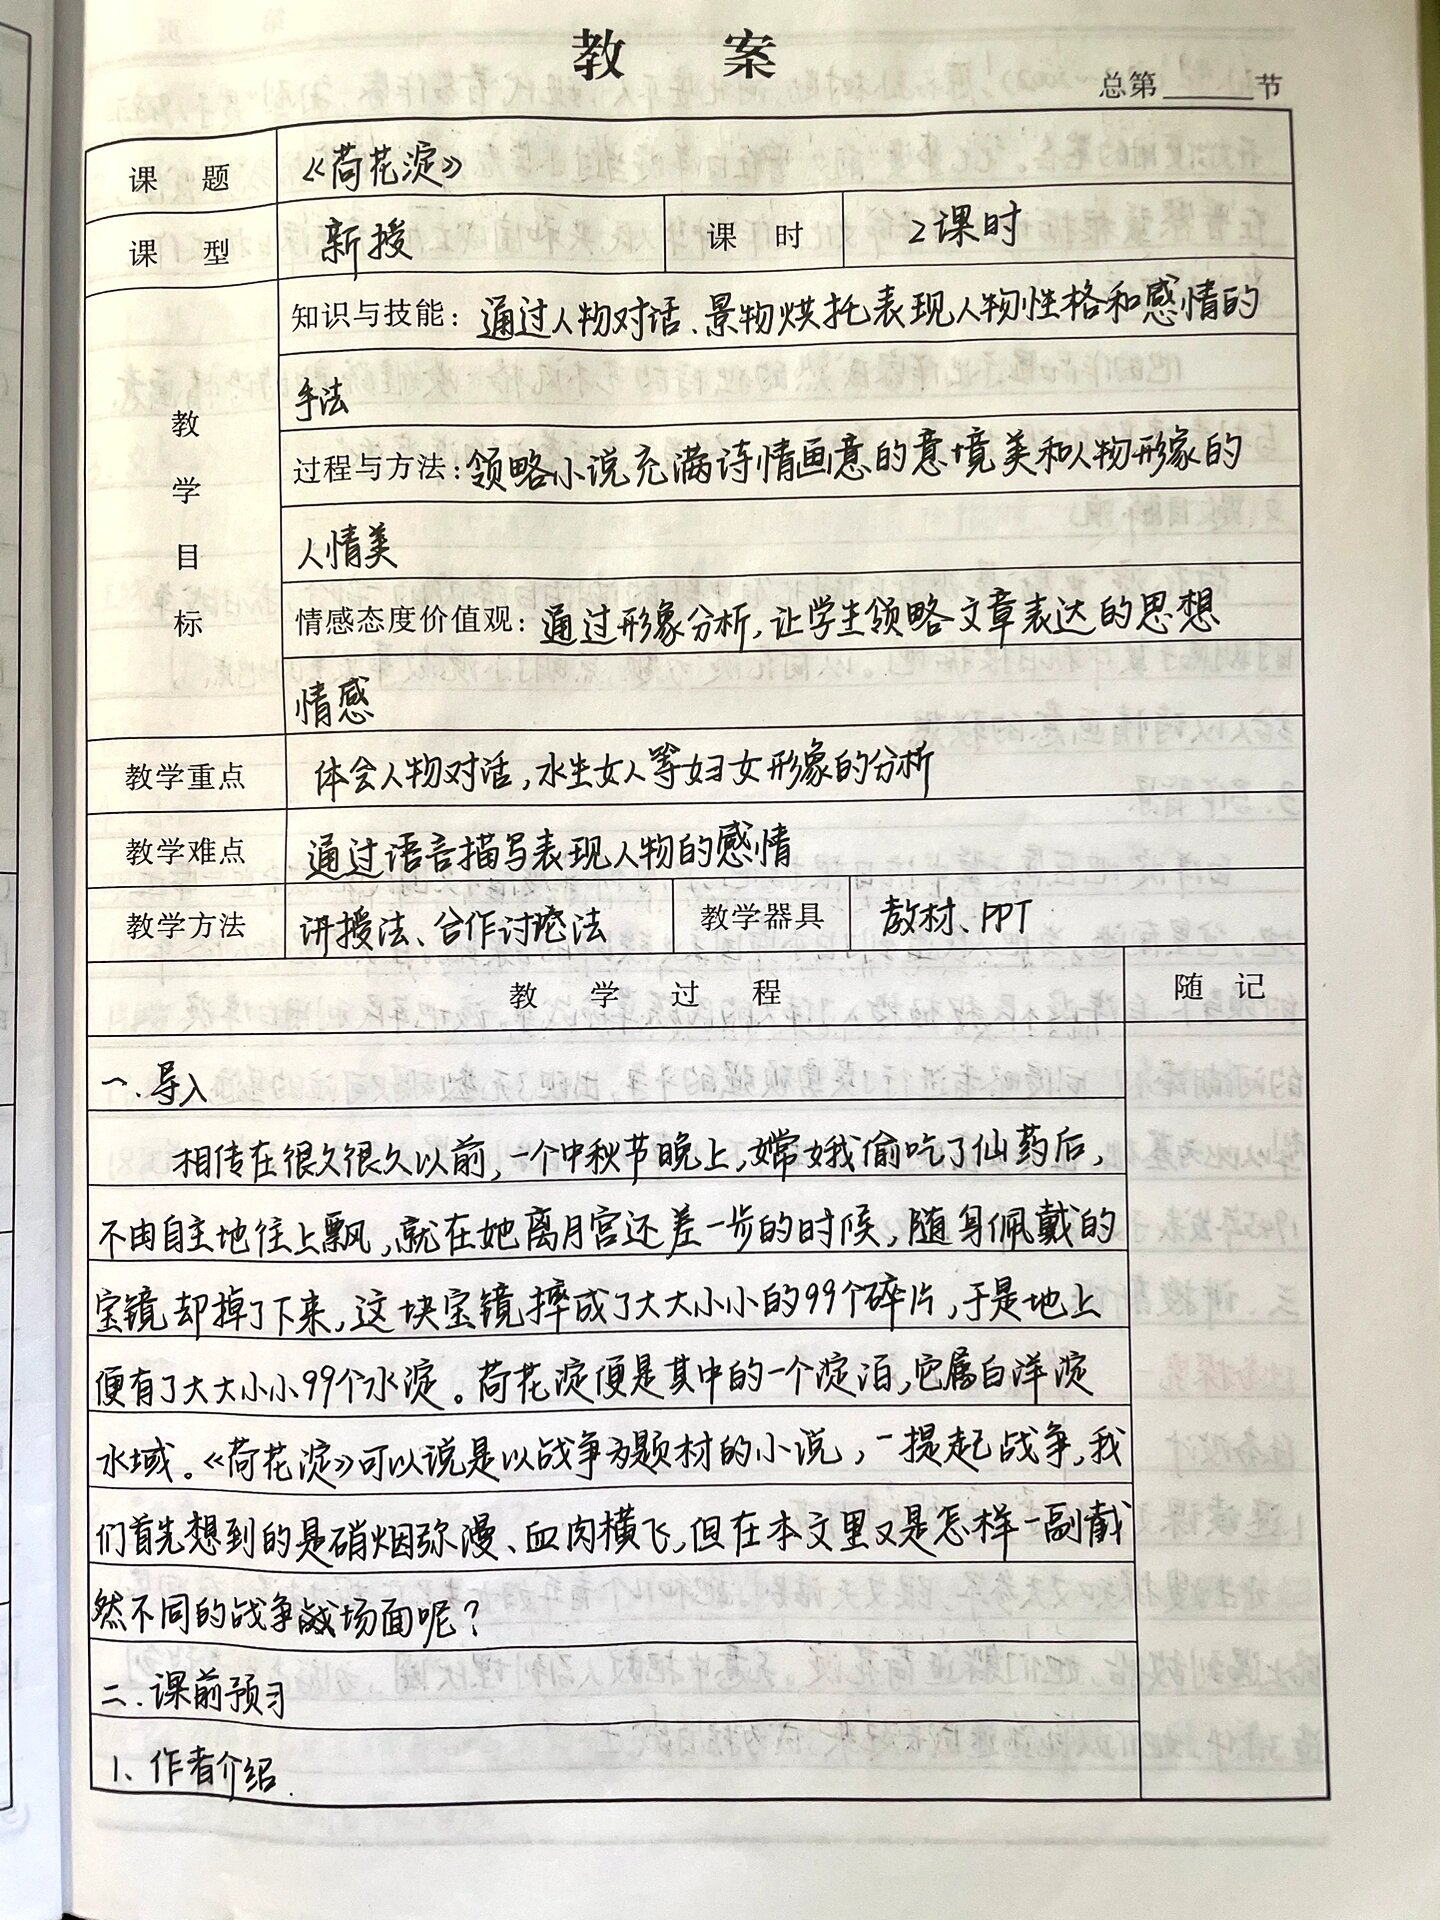 教 案
总第______节
课 题 《荷花淀》
课 型 新授 课 时 2课时
教学目标
知识与技能：通过人物对话、景物烘托表现人物性格和感情的
手法
过程与方法：领略小说充满诗情画意的意境美和人物形象的
人情美
情感态度价值观：通过形象分析，让学生领略文章表达的思想
情感
教学重点 体会人物对话，水生女人等妇女形象的分析
教学难点 通过语言描写表现人物的感情
教学方法 讲授法、合作讨论法 教学器具 教材、PPT
教 学 过 程 随 记
一.导入
相传在很久很久以前，一个中秋节晚上，嫦娥偷吃了仙药后，
不由自主地往上飘，就在她离月宫还差一步的时候，随身佩戴的
宝镜却掉了下来，这块宝镜摔成了大大小小的99个碎片，于是地上
便有了大大小小99个水淀。荷花淀便是其中的一个淀泊，它属白洋淀
水域。《荷花淀》可以说是以战争为题材的小说，一提起战争，我
们首先想到的是硝烟弥漫、血肉横飞，但在本文里又是怎样一副截
然不同的战争战场面呢？
二.课前预习
1、作者介绍.